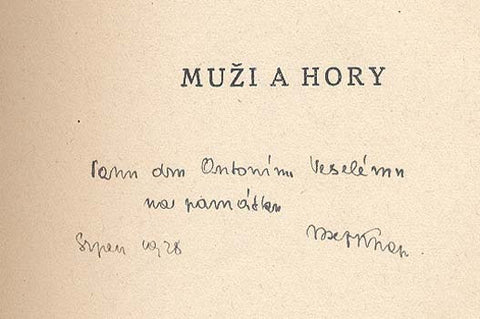 MUŽI A HORY
Panu dru Antonínu Veselému
na památku
Srpen 1928